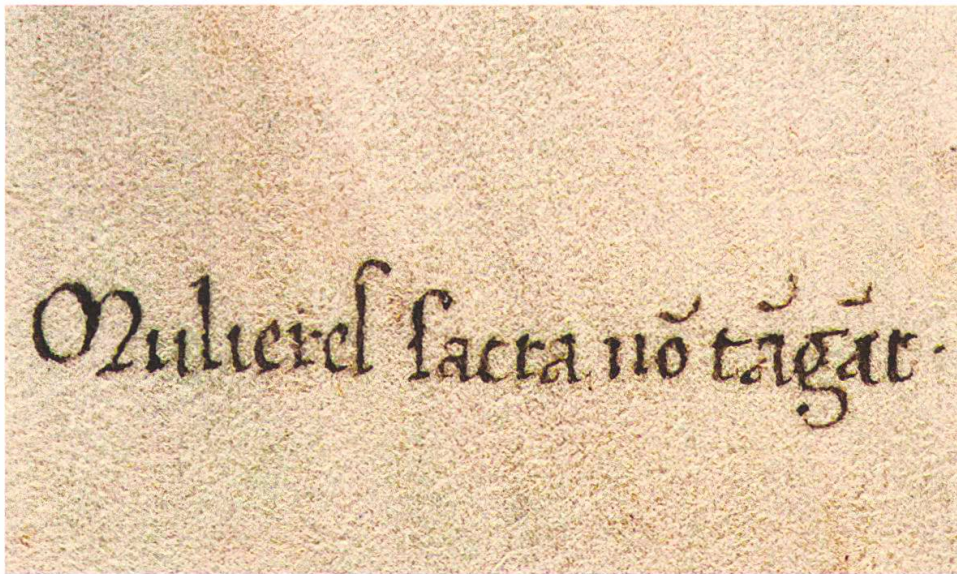 Mulieres sacra nō tāgāt.